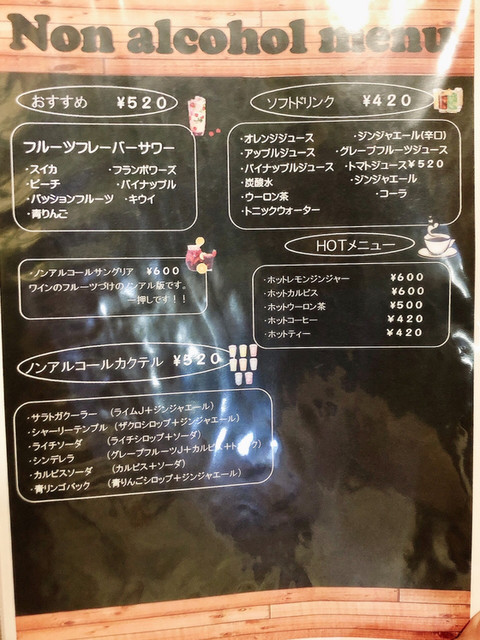 Non alcohol menu
おすすめ ¥520
フルーツフレーバーサワー
・スイカ ・フランボワーズ
・ピーチ ・パイナップル
・パッションフルーツ ・キウイ
・青りんご
・ノンアルコールサングリア ¥600
ワインのフルーツづけのノンアル版です。
一押しです！！
ノンアルコールカクテル ¥520
・サラトガクーラー （ライムJ＋ジンジャエール）
・シャーリーテンプル （ザクロシロップ＋ジンジャエール）
・ライチソーダ （ライチシロップ＋ソーダ）
・シンデレラ （グレープフルーツJ＋カルピス＋トニック）
・カルピスソーダ （カルピス＋ソーダ）
・青リンゴバック （青りんごシロップ＋ジンジャエール）
ソフトドリンク ¥420
・オレンジジュース ・ジンジャエール(辛口)
・アップルジュース ・グレープフルーツジュース
・パイナップルジュース ・トマトジュース¥520
・炭酸水 ・ジンジャエール
・ウーロン茶 ・コーラ
・トニックウォーター
HOTメニュー
・ホットレモンジンジャー ¥600
・ホットカルピス ¥600
・ホットウーロン茶 ¥500
・ホットコーヒー ¥420
・ホットティー ¥420